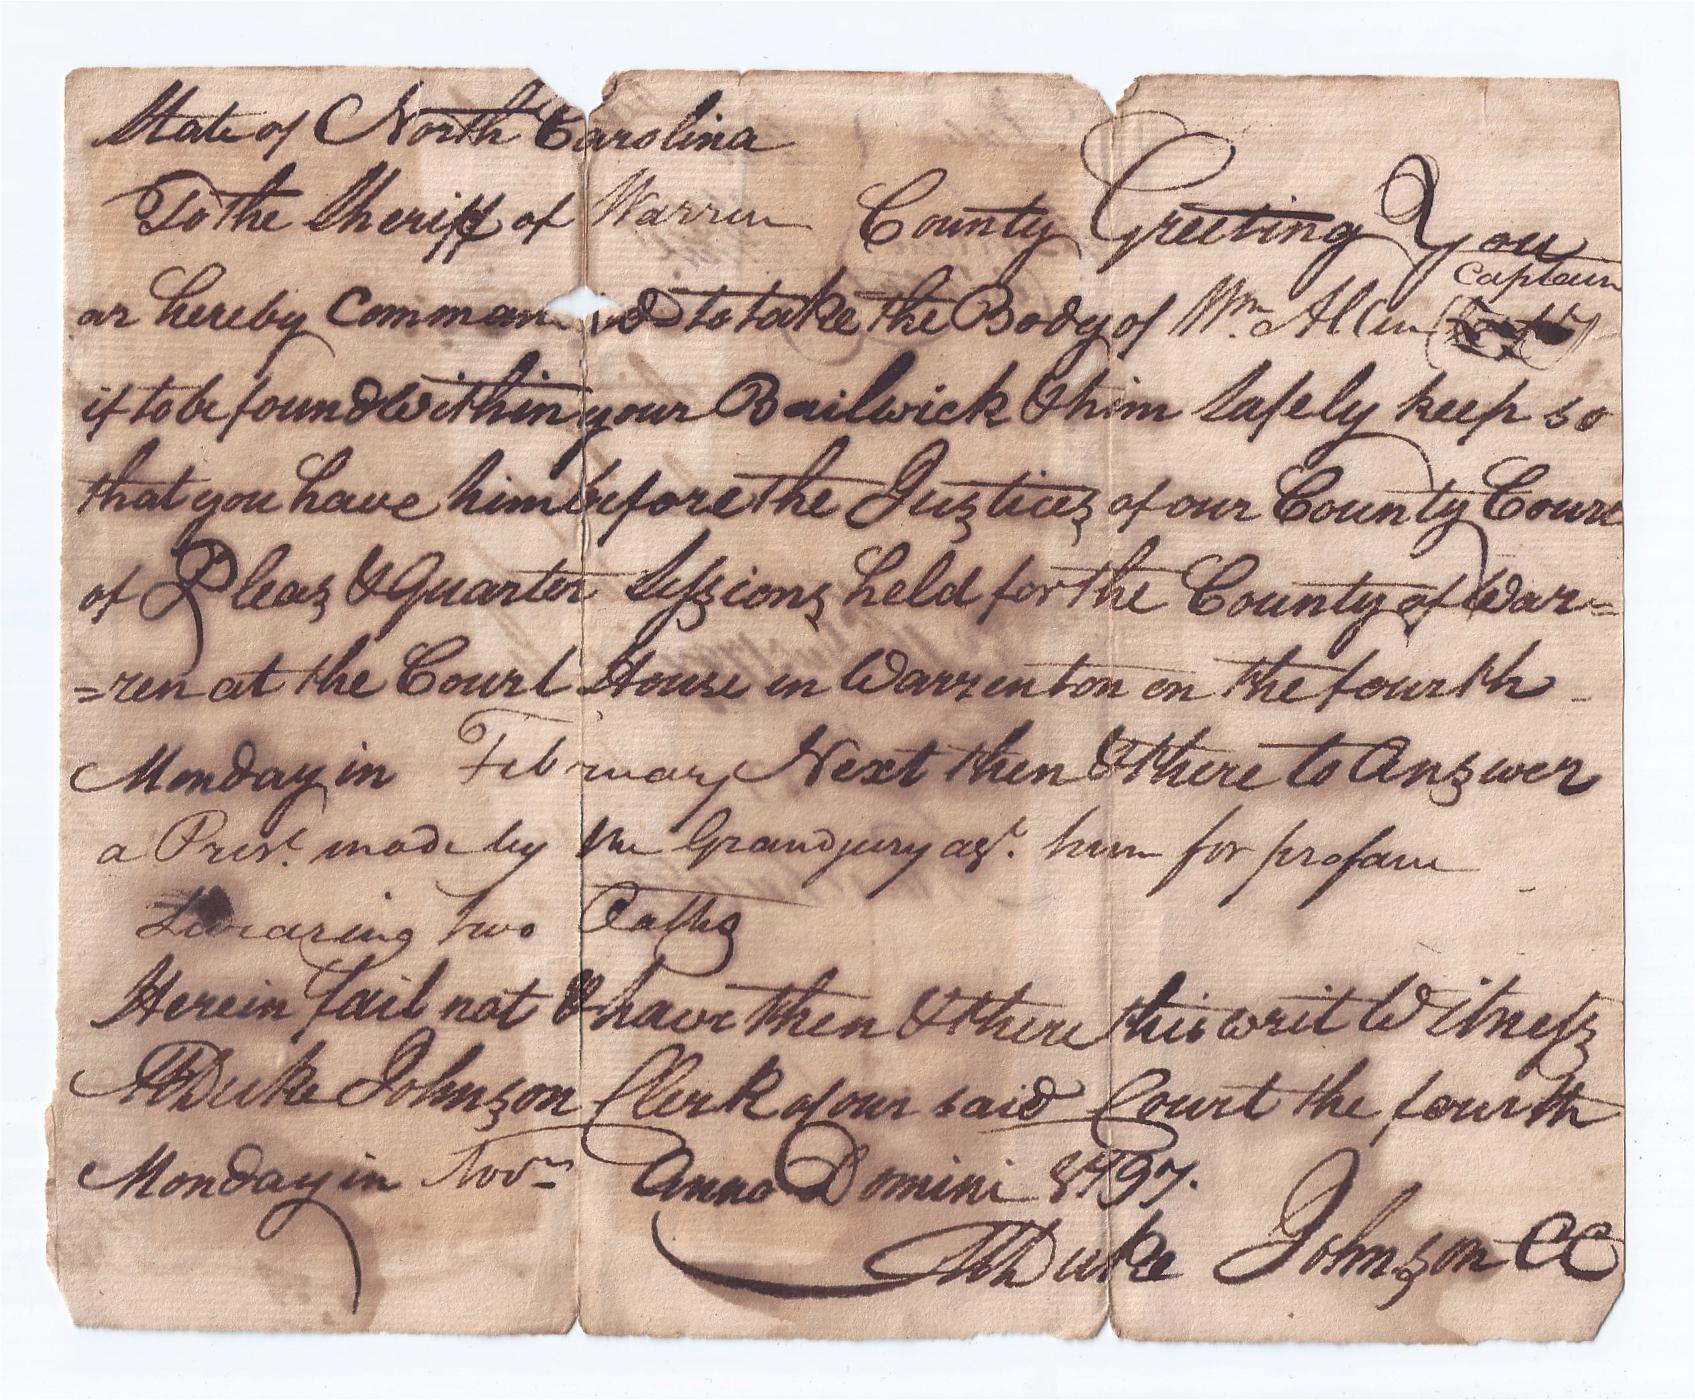 State of North Carolina
To the Sheriff of Warren County Greeting You
ar hereby Command to take the Body of Wm. Allen (Captain
if to be found within your Bailwick & him Safely keep so
that you have him before the Justices of our County Court
of Pleas & Quarter Sessions held for the County of War=
=ren at the Court House in Warrenton on the fourth
Monday in February Next then & there to Answer
a Prest. made by the Grandjury agt. him for profane
Swearing two Oaths
Herein fail not & have then & there this writ Witness
MDuke Johnson Clerk of our said Court the fourth
Monday in Novr. Anno Domini 1797.
MDuke Johnson CC